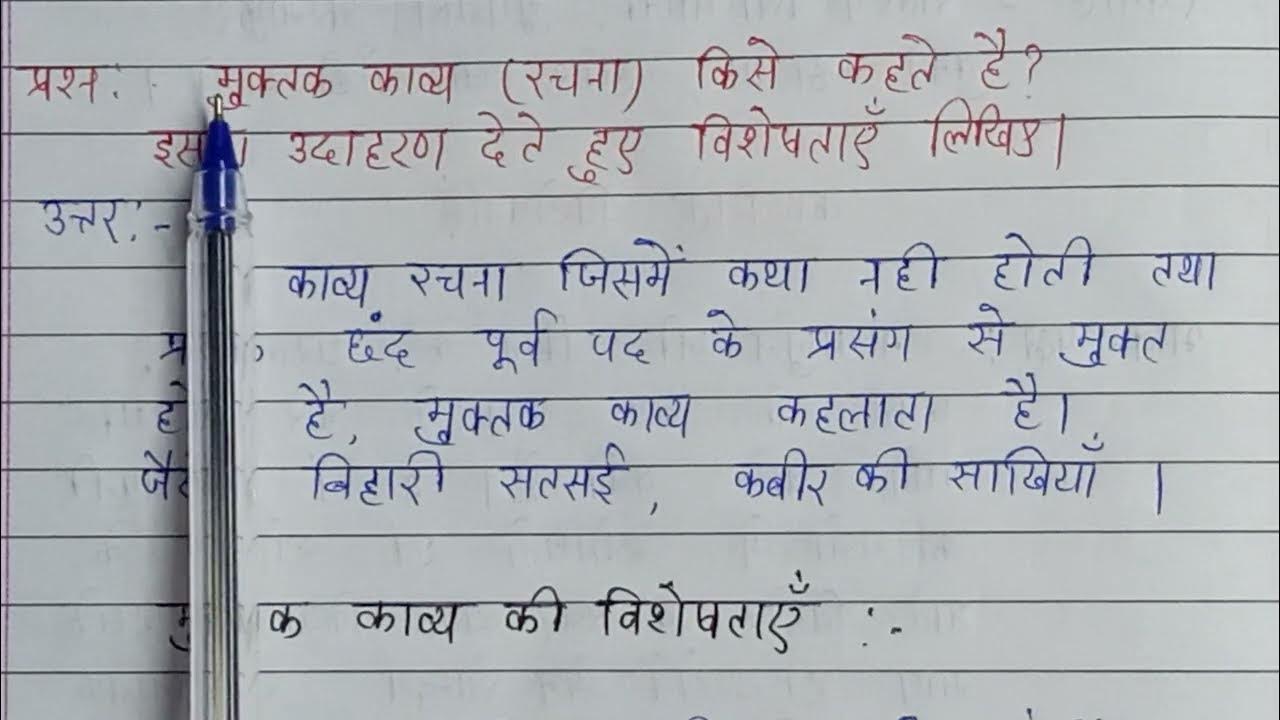 प्रश्न: मुक्तक काव्य (रचना) किसे कहते है?
उदाहरण देते हुए विशेषताएँ लिखिए।
उत्तर:-
काव्य रचना जिसमें कथा नही होती तथा
छंद पूर्व पद के प्रसंग से मुक्त
है, मुक्तक काव्य कहलाता है।
बिहारी सतसई, कबीर की साखियाँ ।
क काव्य की विशेषताएँ :-